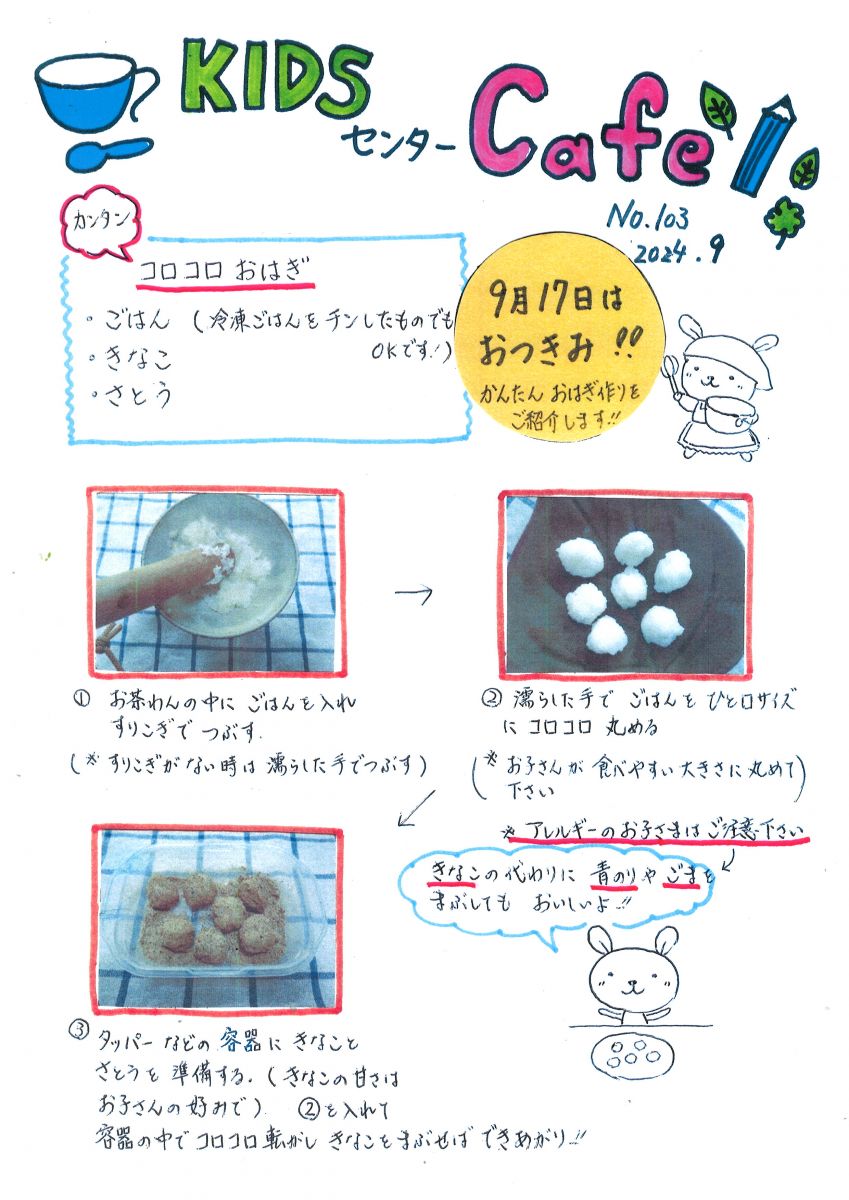 KIDS
センター Cafe!
No.103
2024.9
カンタン
コロコロ おはぎ
・ごはん (冷凍ごはんを チンしたものでも
OKです!)
・きなこ
・さとう
9月17日は
おつきみ!!
かんたん おはぎ作りを
ご紹介します!!
① お茶わんの中に ごはんを入れ
すりこぎで つぶす.
(※ すりこぎが ない時は 濡らした手でつぶす)
② 濡らした手で ごはんを ひと口サイズ
に コロコロ 丸める
(※ お子さんが 食べやすい 大きさに 丸めて
下さい)
※ アレルギーの お子さまは ご注意下さい
きなこの代わりに 青のりや ごまを
まぶしても おいしいよ!!
③ タッパー などの 容器に きなこと
さとうを 準備する.(きなこの 甘さは
お子さんの 好みで) ②を入れて
容器の中で コロコロ 転がし きなこを まぶせば できあがり!!